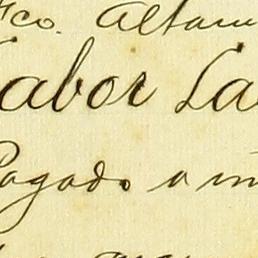 Fco. Altam
abor La
Pagado a mi